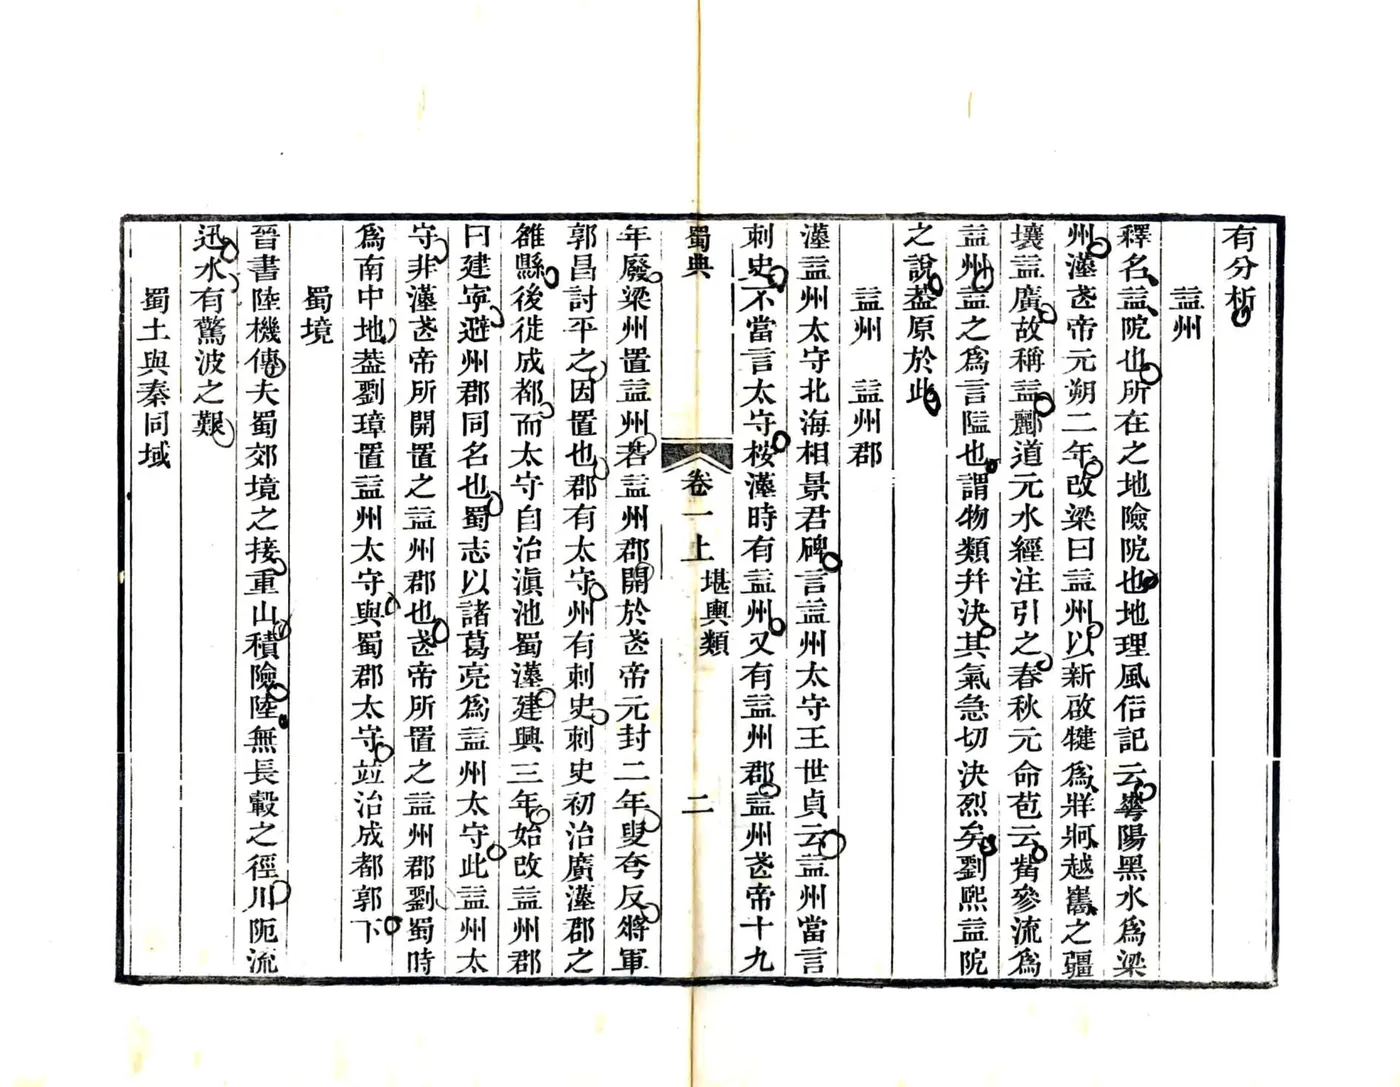 有分析
益州
釋名益阨也所在之地險阨也地理風俗記云華陽黑水爲梁
州漢武帝元朔二年改梁曰益州以新啟犍爲牂牁越巂之疆
壤益廣故稱益酈道元水經注引之春秋元命苞云觜參流爲
益州益之爲言隘也謂物類幷決其氣急切決烈矣劉熙益阨
之說葢原於此
益州 益州郡
漢益州太守北海相景君碑言益州太守王世貞云益州當言
刺史不當言太守桉漢時有益州又有益州郡益州武帝十九
蜀典
卷一上
堪輿類
二
年廢梁州置益州若益州郡開於武帝元封二年叟夸反將軍
郭昌討平之因置也郡有太守州有刺史刺史初治廣漢郡之
雒縣後徙成都而太守自治滇池蜀漢建興三年始改益州郡
曰建寧避州郡同名也蜀志以諸葛亮爲益州太守此益州太
守非漢武帝所開置之益州郡也武帝所置之益州郡劉蜀時
爲南中地葢劉璋置益州太守與蜀郡太守竝治成都郭下
蜀境
晉書陸機傳夫蜀郊境之接重山積險陸無長轂之徑川阨流
迅水有驚波之艱
蜀土與秦同域